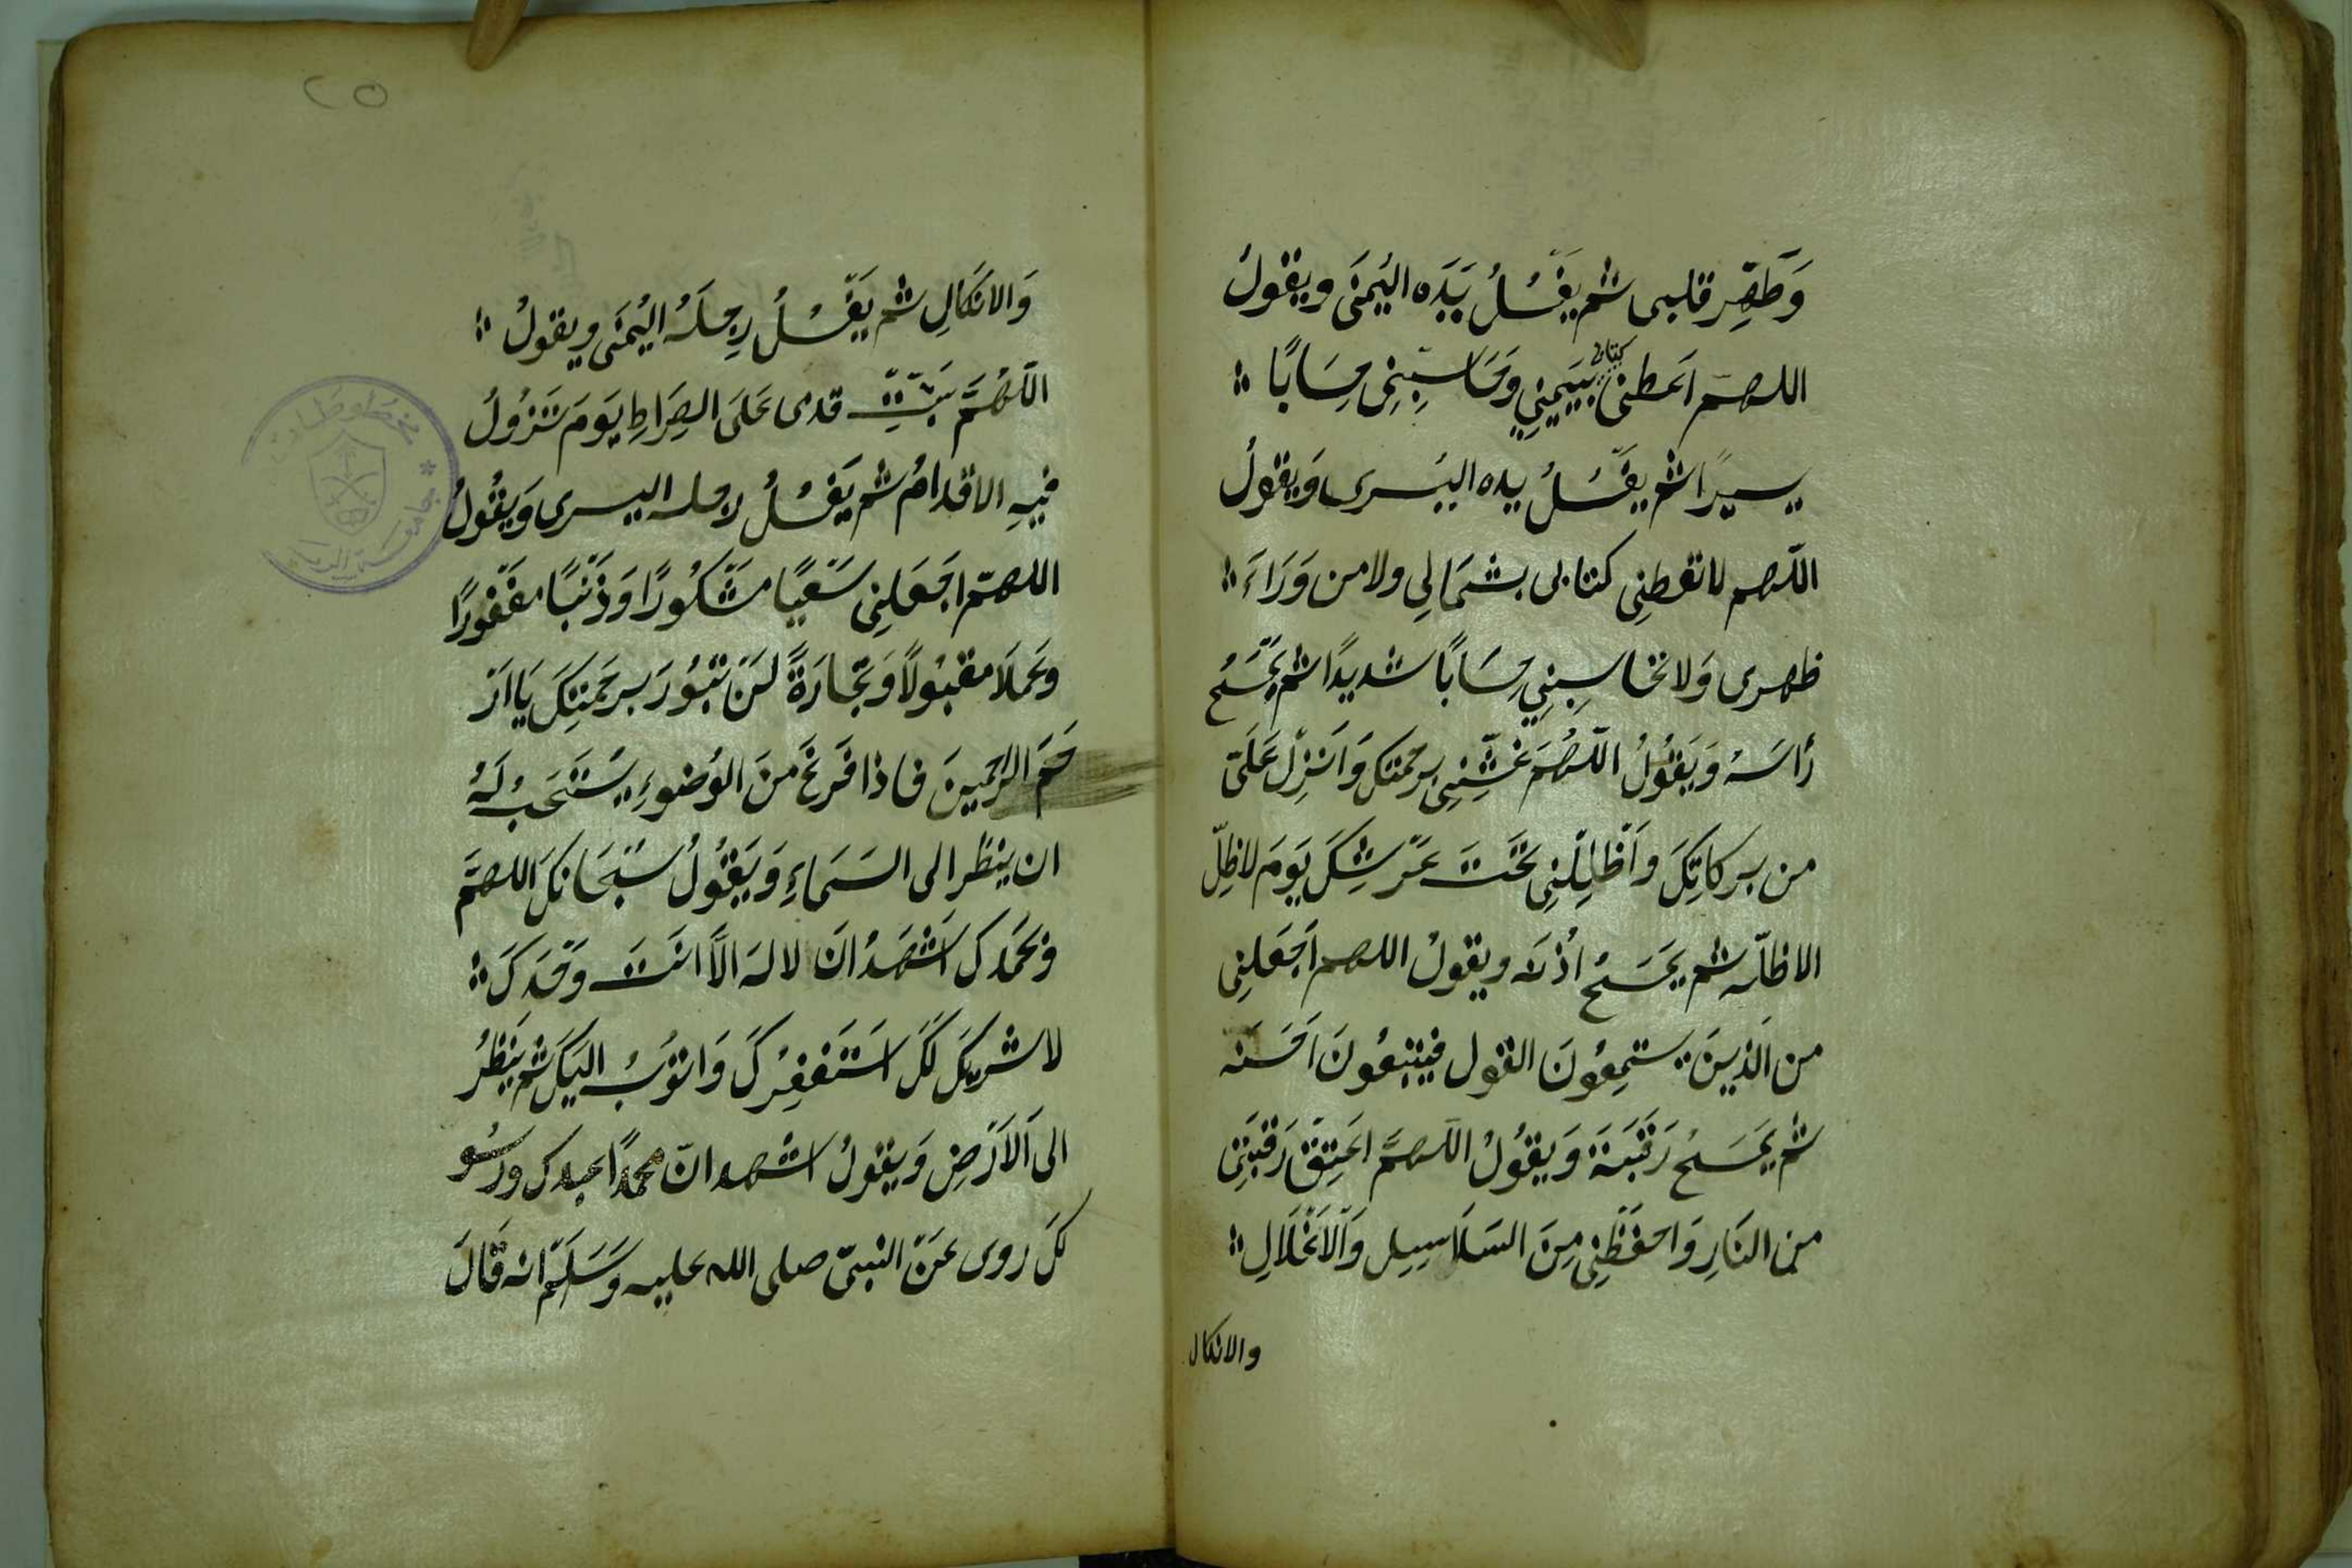 وَطَهِّر قلبى ثم يغْسُلُ يَدَه اليُمنَى ويقولُ
اللهم اَعطنى كتابى بيَمينِي وَحَاسِبنِى حِسَابًا
يسيرًا ثم يغْسُلُ يده اليُسرى وَيقولُ
اللّهم لا تعطنِى كتابى بشمَالِى ولا من وَرَاءَ
ظهرى وَلا تحاسِبنِي حِسَابًا شديدًا ثم يَمْسَحُ
رَأسَهُ وَيَقُولُ اللّهُمَ غَشِّنِى برحمتكَ وَاَنْزِل عَلَىّ
من بركاتِكَ وَاَظْلِلْنِى تَحْتَ عَرْشِكَ يَومَ لا ظِلّ
الا ظلّه ثم يَمسَحُ اُذنَه ويقولُ اللهم اَجعَلنِى
من الَذينَ يستمِعُونَ القول فيَتبعُونَ اَحسَنه
ثم يَمسَحُ رَقَبَتَهَ وَيقُولُ اللّهمَّ اَعتِقْ رَقبَتِى
من النَارِ وَاحفَظنِى مِنَ السَلَاسِيِل وَالاَغْلَالِ
والانكال
٢٥
وَالانكَالِ ثم يَغْسُلُ رِجلَهُ اليُمنَى ويقولُ
اللّهُمَّ ثَبِّتْ قدمى عَلَى الصِرَاطِ يَومَ تَزُولُ
فيِهِ الاقدامُ ثم يَغْسُلُ رجله اليسرى وَيقُولُ
اللهمّ اجَعَلنِى سَعْيًا مشَكُورًا وَذَنْبًا مغْفورًا
وعَملَا مقبُولًا وَتِجَارَةً لَنْ تبُورَ برحَمتِكَ يَا اَرْ
حَمَ الرّاحمينَ فاذا فَرغَ منَ الوُضوءِ يُستَحَبُ لَهُ
ان ينظر الى السَمَاءِ وَيَقُولُ سُبْحَانكَ اللهمَّ
وبحَمدكَ اَشْهَدُ انَ لا له الاَّ انتَ وَحْدَكَ
لا شريكَ لَكَ اَستَغفِرُكَ وَاتوُبُ اليَكَ ثم يَنظُرُ
الى اَلاَرَضِ وَيقولُ اشهد انّ محمدًا عبدك ورسُو
لكَ روى عَنِ النبىّ صلى الله عليه وَسَلَّم انه قَالَ
مخطوطات
جامعة الرياض